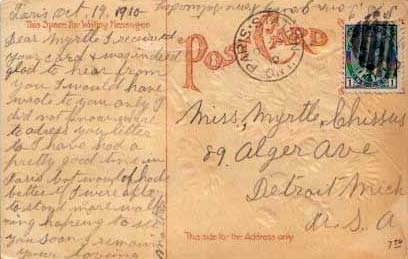 Paris Oct 19, 1910
This Space for Writing Messages
Dear Myrtle I received
your card & was indeed
glad to hear from
you I would have
wrote to you only I
did not know where
to adress you letter
to I have had a
pretty good time in
Paris but would of had
better if I were able
to stand more walk
ing hopeing to see
you soon I remain
your loving
POST CARD
PARIS STATION
ONT.
1
Miss, Myrtle, Chissus
89. Alger Ave
Detroit Mich
U.S. A
This side for the Address only.